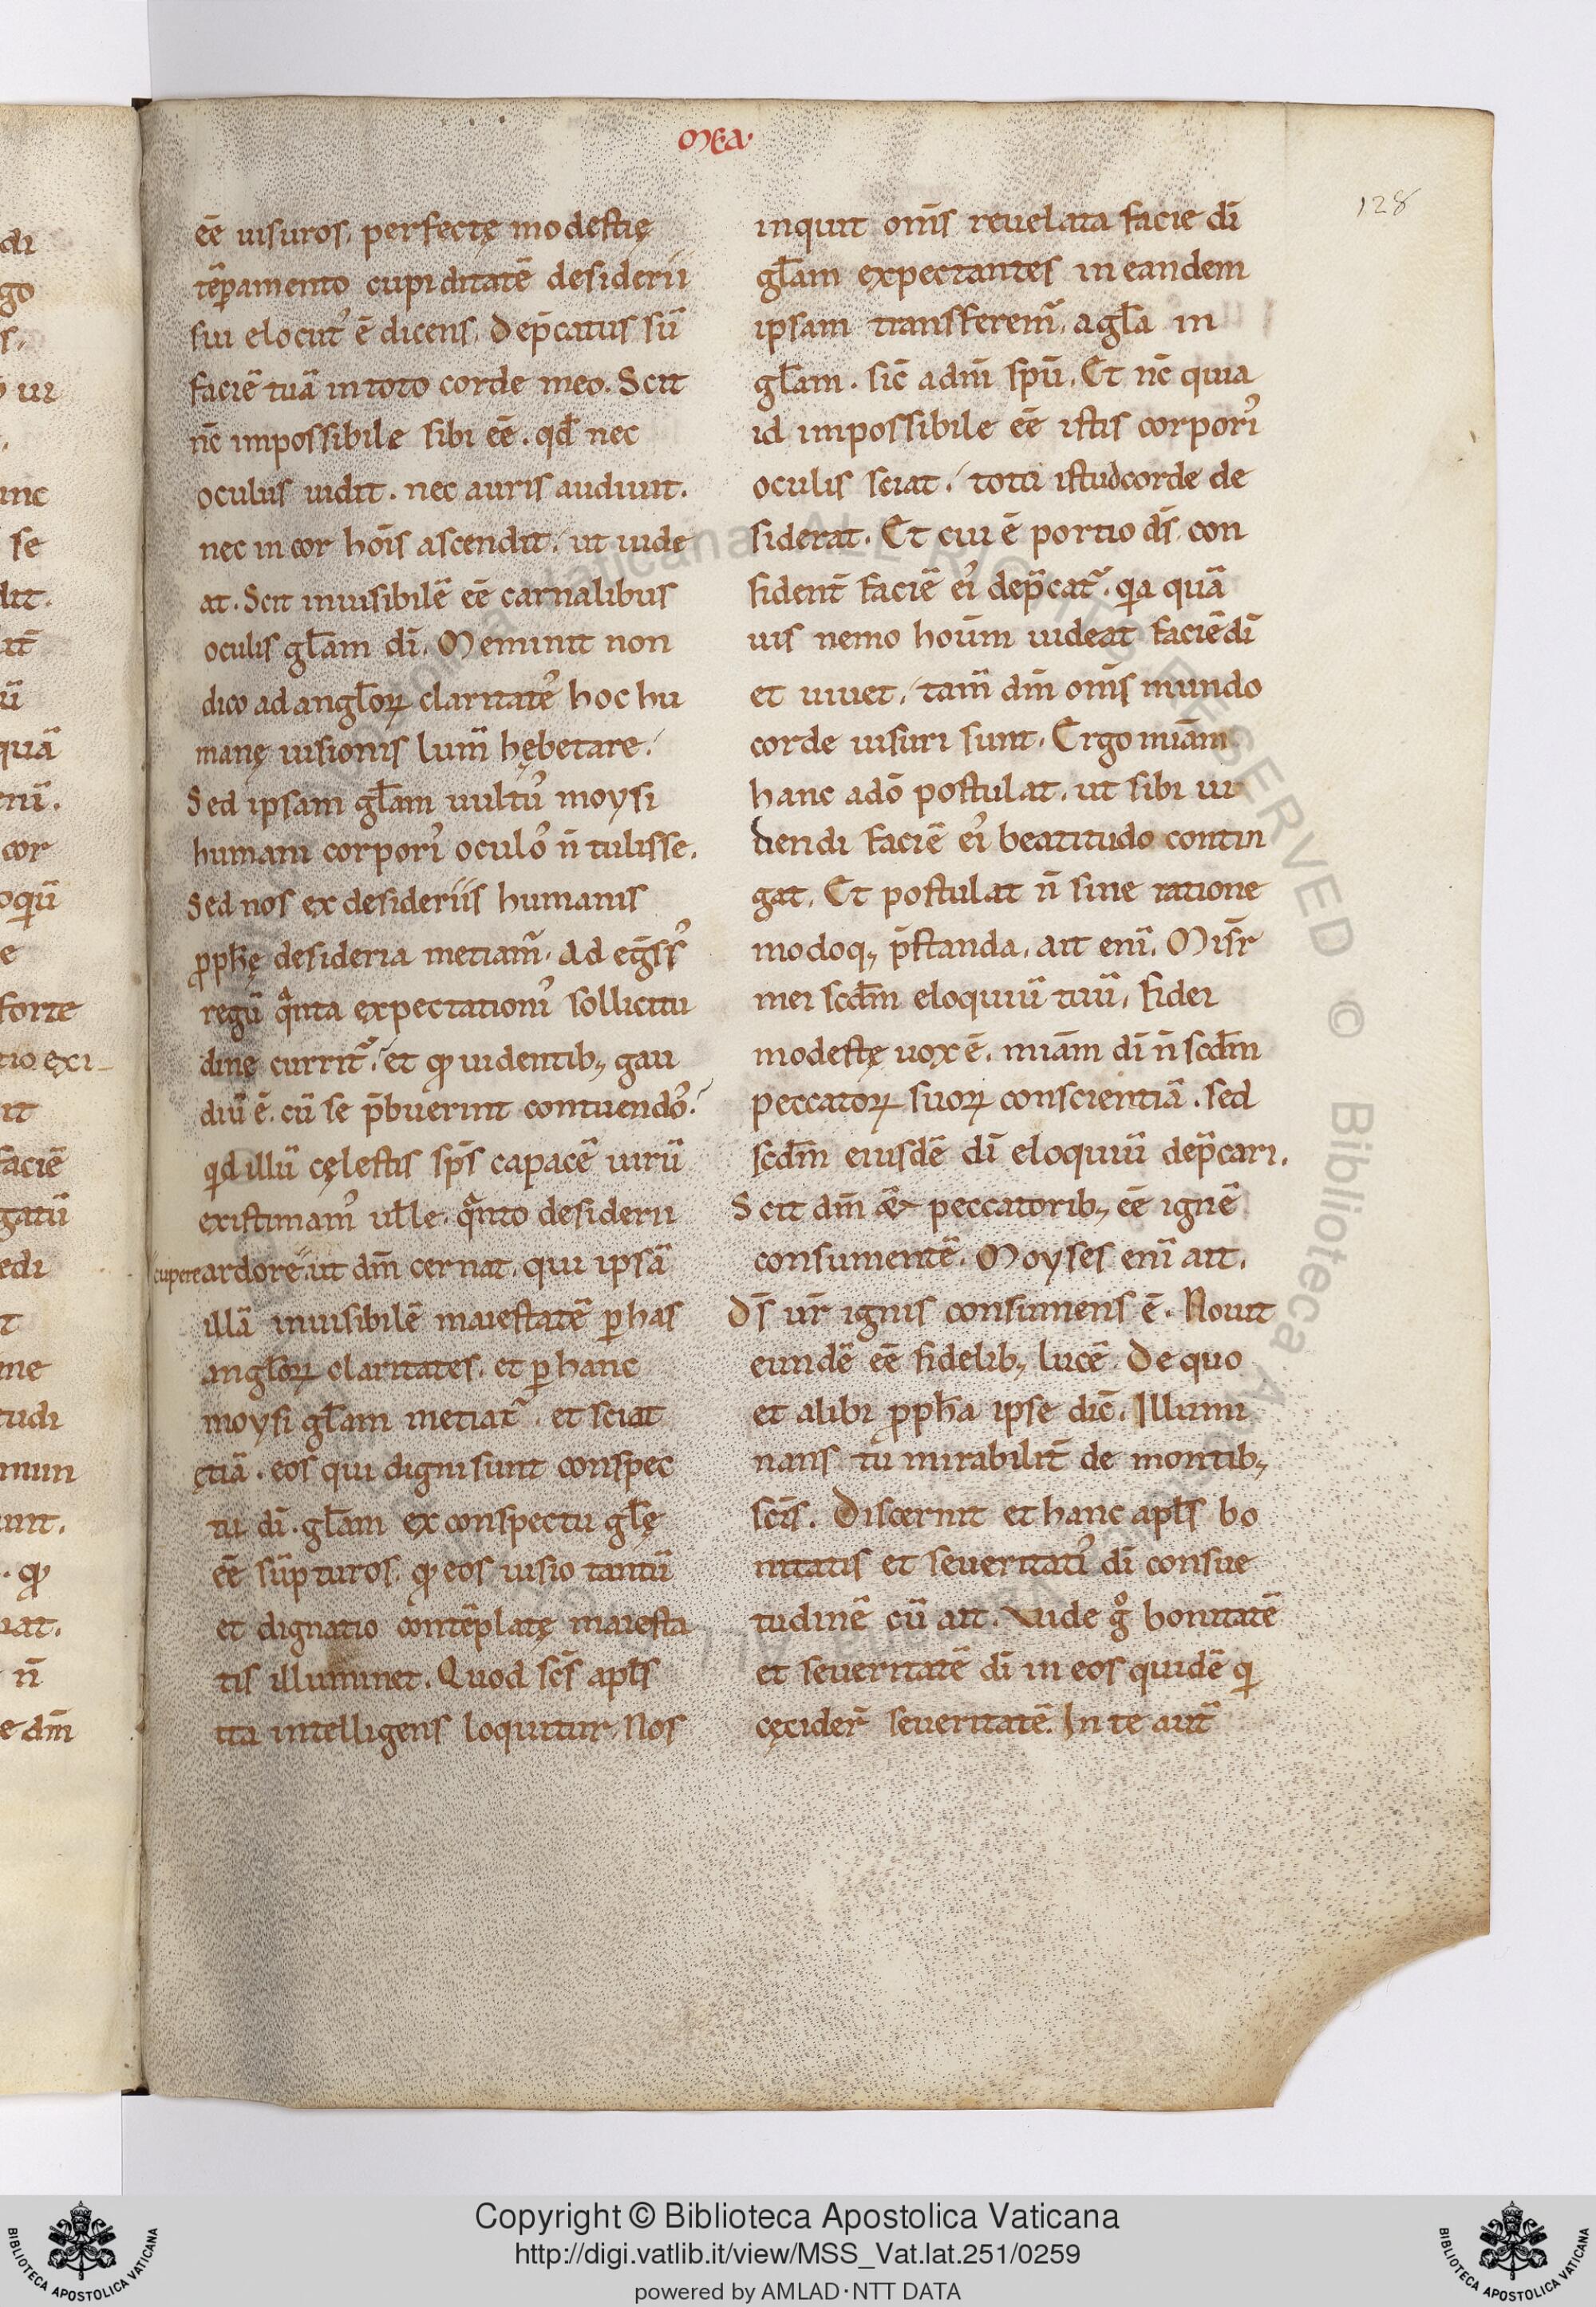 mea.
128
eē uisuros. perfectę modestię
tēparamento cupiditatē desiderii
sui elocutꝰ ē dicens. Dep̄catus sū
faciē tuā in toto corde meo. Scit
nc̄ impossibile sibi eē. qd̄ nec
oculus uidit. nec auris audiuit.
nec in cor hoīs ascendit. ut uide
at. Scit inuisibilē eē carnalibus
oculis gl̄am dī. Meminit non
dico ad angl̄oꝝ claritatē hoc hu
manę uisionis lum̄ hębetare.
Sed ipsam gl̄am uultꝰ moysi
humani corporꝭ oculoꝰ n̄ tulisse.
Sed nos ex desideriis humanis
ꝓph̄ę desideria metiam̃. Ad eg̃ssꝰ
regū qͣnta expectationꝭ sollicitu
dine currit̃. et ꝙ uidentib; gau
diū ē. cū se p̄buerint contuendoꝰ.
qd illū cęlestis sp̄s capacē uirū
existimamꝰ uel̄le. qͣnto desiderii
cupere ardorē. ut dm̄ cernat. qui ipsā
illā inuisibilē maiestatē ꝑ has
angl̄oꝝ claritates. et ꝑ hanc
moysi gl̄am metiat̃. et sciat
ętiā. eos qui digni sunt conspec
tu dī. gl̄am ex conspectu gl̄ę
eē sūpturos. ꝙ eos uisio tantū
et dignatio contēplatę maiesta
tis illuminet. Quod sc̄s apl̄s
ita intelligens loquitur. Nos
inquit om̄s reuelata facie dī
gl̄am expectantes in eandem
ipsam transferem̃. a gl̄a in
gl̄am. sic̄ a dn̄i spū. Et nc̄ quia
id impossibile eē istis corporꝭ
oculis sciat. toto istud corde de
siderat. Et cui ē portio d̄s. con
fident̄ faciē eiꝰ dep̄cat̃. qia quā
uis nemo hoūm uideat faciē dī
et uiuet. tam̄ dm̄ om̄s mundo
corde uisuri sunt. Ergo miām
hanc a dō postulat. ut sibi ui
dendi faciē eiꝰ beatitudo contin
gat. Et postulat n̄ sine ratione
modoq; p̄standa. ait eni. Misr̄
mei scdm̄ eloquiū tuū. Fidei
modestę uox ē. miām dī n̄ scdm̄
peccatoꝝ suoꝝ conscientiā. sed
scdm̄ eiusdē dī eloquiū dep̄cari.
Scit dm̄ & peccatorib; eē ignē
consumentē. Moyses eni ait.
D̄s ur̄ ignis consumens ē. Nouit
eundē eē fidelib; lucē. De quo
et alibi ꝓph̄a ipse dic̄. Illumi
nans tu mirabilit̄ de montib;
sc̄is. Discernit et hanc apl̄s bo
nitatis et seueritatꝭ dī consue
tudinē cū ait. Vide gͦ bonitatē
et seueritatē dī in eos quidē qi
cęcider̄ seueritatē. In te aut̄
Copyright © Biblioteca Apostolica Vaticana
http://digi.vatlib.it/view/MSS_Vat.lat.251/0259
powered by AMLAD·NTT DATA